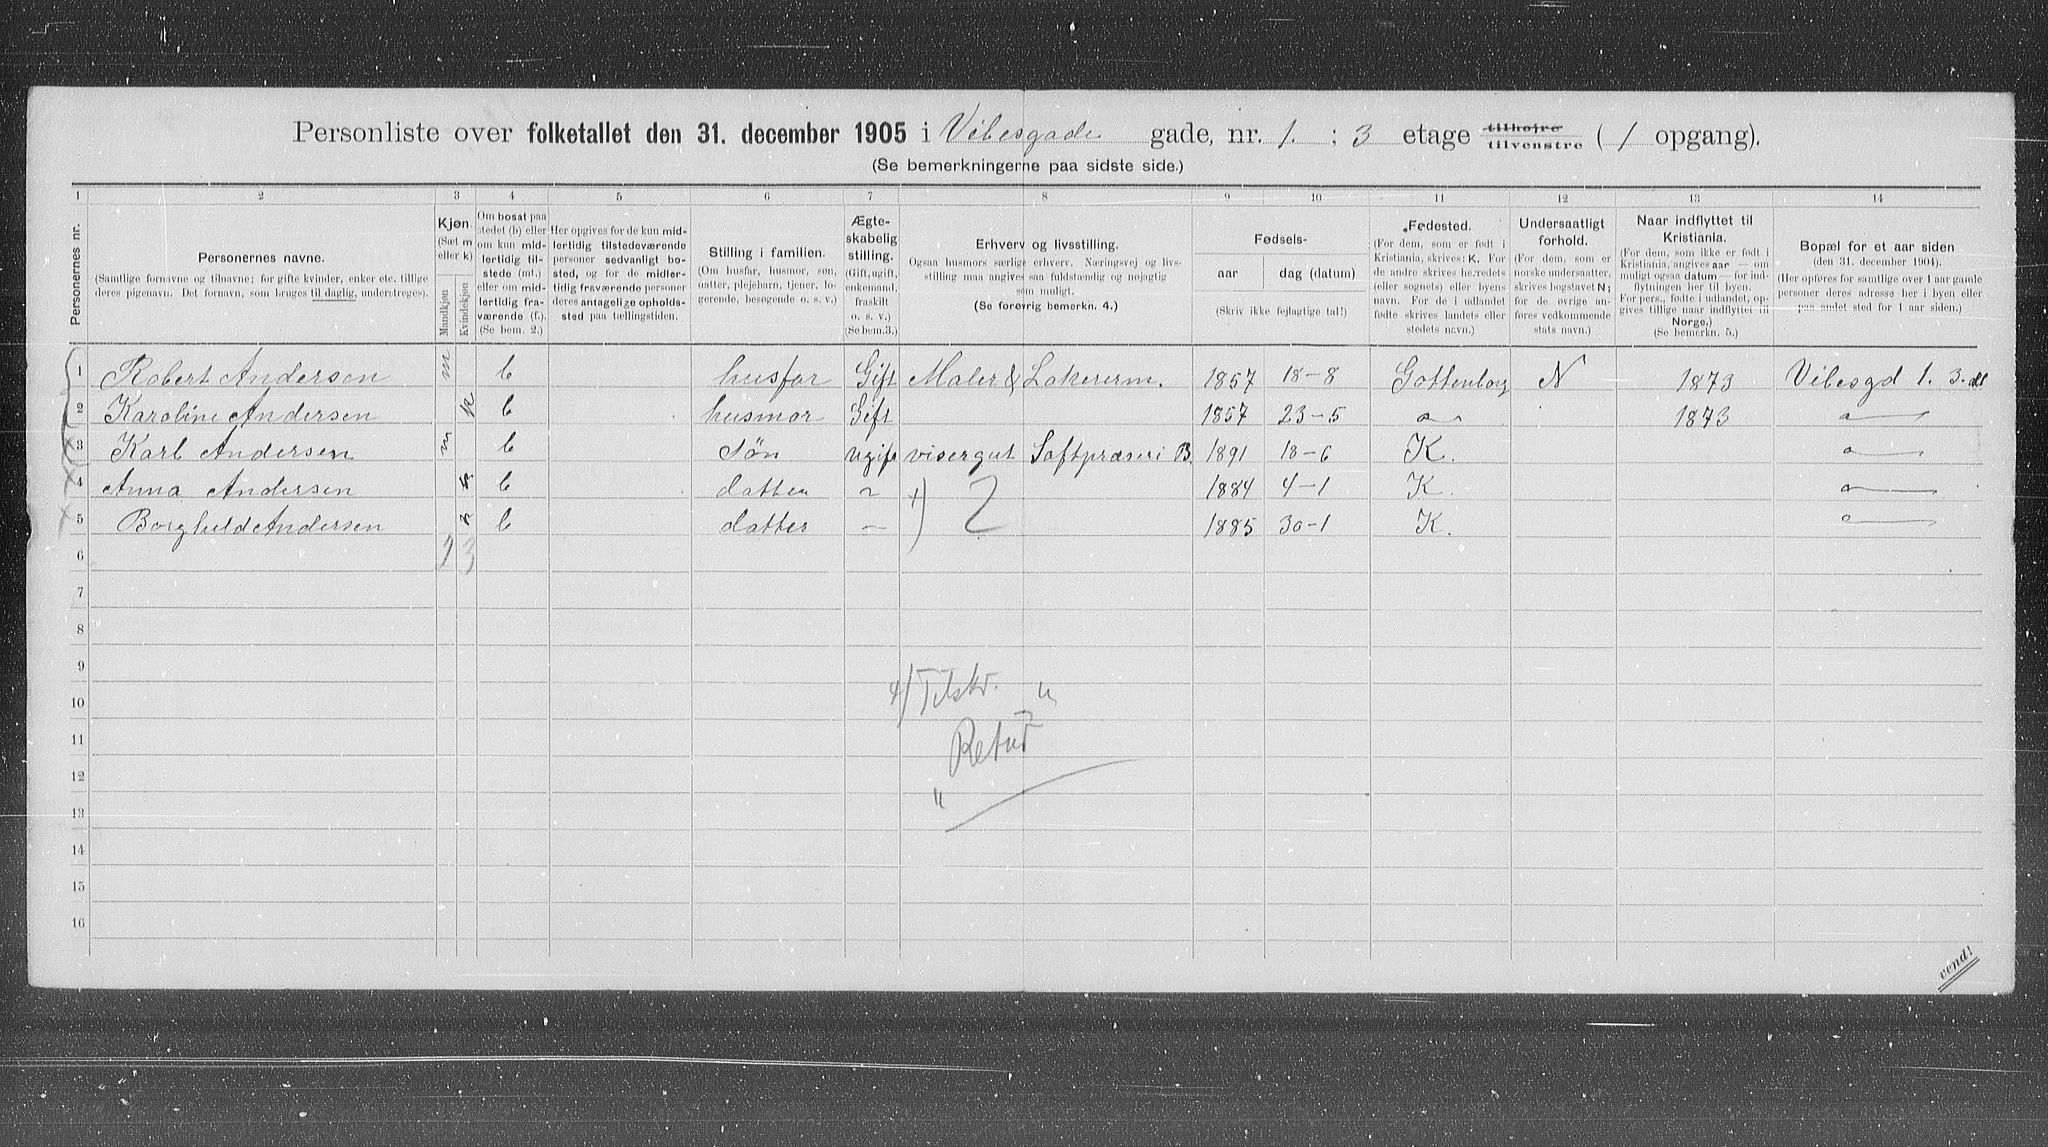 Personliste over folketallet den 31. december 1905 i Vibesgade gade, nr. 1. ; 3 etage tilhøjre tilvenstre ( 1 opgang).
(Se bemerkningerne paa sidste side.)
1 2 3 4 5 6 7 8 9 10 11 12 13 14
Personernes nr.
Personernes navne.
(Samtlige fornavne og tilnavne; for gifte kvinder, enker etc. tillige
deres pigenavn. Det fornavn, som bruges til daglig, understreges).
Kjøn.
(Sæt m
eller k)
Mandkjøn
Kvindekjøn
Om bosat paa
stedet (b) eller
om kun mid-
lertidig til-
stede (mt.)
eller om mid-
lertidig fra-
værende (f.).
(Se bem. 2.)
Her opgives for de kun mid-
lertidig tilstedeværende
personer sedvanligt bo-
sted, og for de midler-
tidig fraværende personer
deres antagelige opholds-
sted paa tællingstiden.
Stilling i familien.
(Om husfar, husmor, søn,
datter, plejebarn, tjener, lo-
gerende, besøgende o. s. v.)
Ægte-
skabelig
stilling.
(Gift, ugift,
enkemand,
fraskilt
o. s. v.)
(Se bem. 3.)
Erhverv og livsstilling.
Ogsaa husmors særlige erhverv. Nærings​vej og livs-
stilling maa angives saa fuldstændig og nøjagtig
som muligt.
(Se forøvrig bemerkn. 4.)
Fødsels-
aar dag (datum)
(Skriv ikke fejlagtige tal!)
Fødested.
(For dem, som er født i
Kristiania, skrives: K. For
de andre skrives herredets
(eller sognets) eller byens
navn. For de i udlandet
fødte skrives landets eller
stedets navn.)
Undersaatligt
forhold.
(For dem, som er
norske undersaatter,
skrives bogstavet N;
for de øvrige an-
føres vedkommende
stats navn.)
Naar indflyttet til
Kristiania.
(For dem, som ikke er født i
Kristiania, angives aar — om
muligt ogsaa datum — for ind-
flytningen her til byen.
For pers., fødte i udlandet, op-
gives tillige naar indflyttet til
Norge.)
(Se bemerkn. 5.)
Bopæl for et aar siden
(den 31. december 1904).
(Her opføres for samtlige over 1 aar gamle
personer deres adresse her i byen eller
paa andet sted for 1 aar siden.)
1 Robert Andersen m b husfar Gift Maler & Lakererm. 1857 18-8 Gottenborg N 1873 Vibesgd 1. 3.
2 Karoline Andersen k b husmor Gift 1857 23-5 1873
3 Karl Andersen m b søn ugift visergut Saftpræseri B. 1891 18-6 K.
4 Anna Andersen k b datter 2 1884 4-1 K.
5 Borghild Andersen k b datter 1885 30-1 K.
6
7
8
9
10
11
12
13
14
15
16
Tilskr.
Retur
vend!